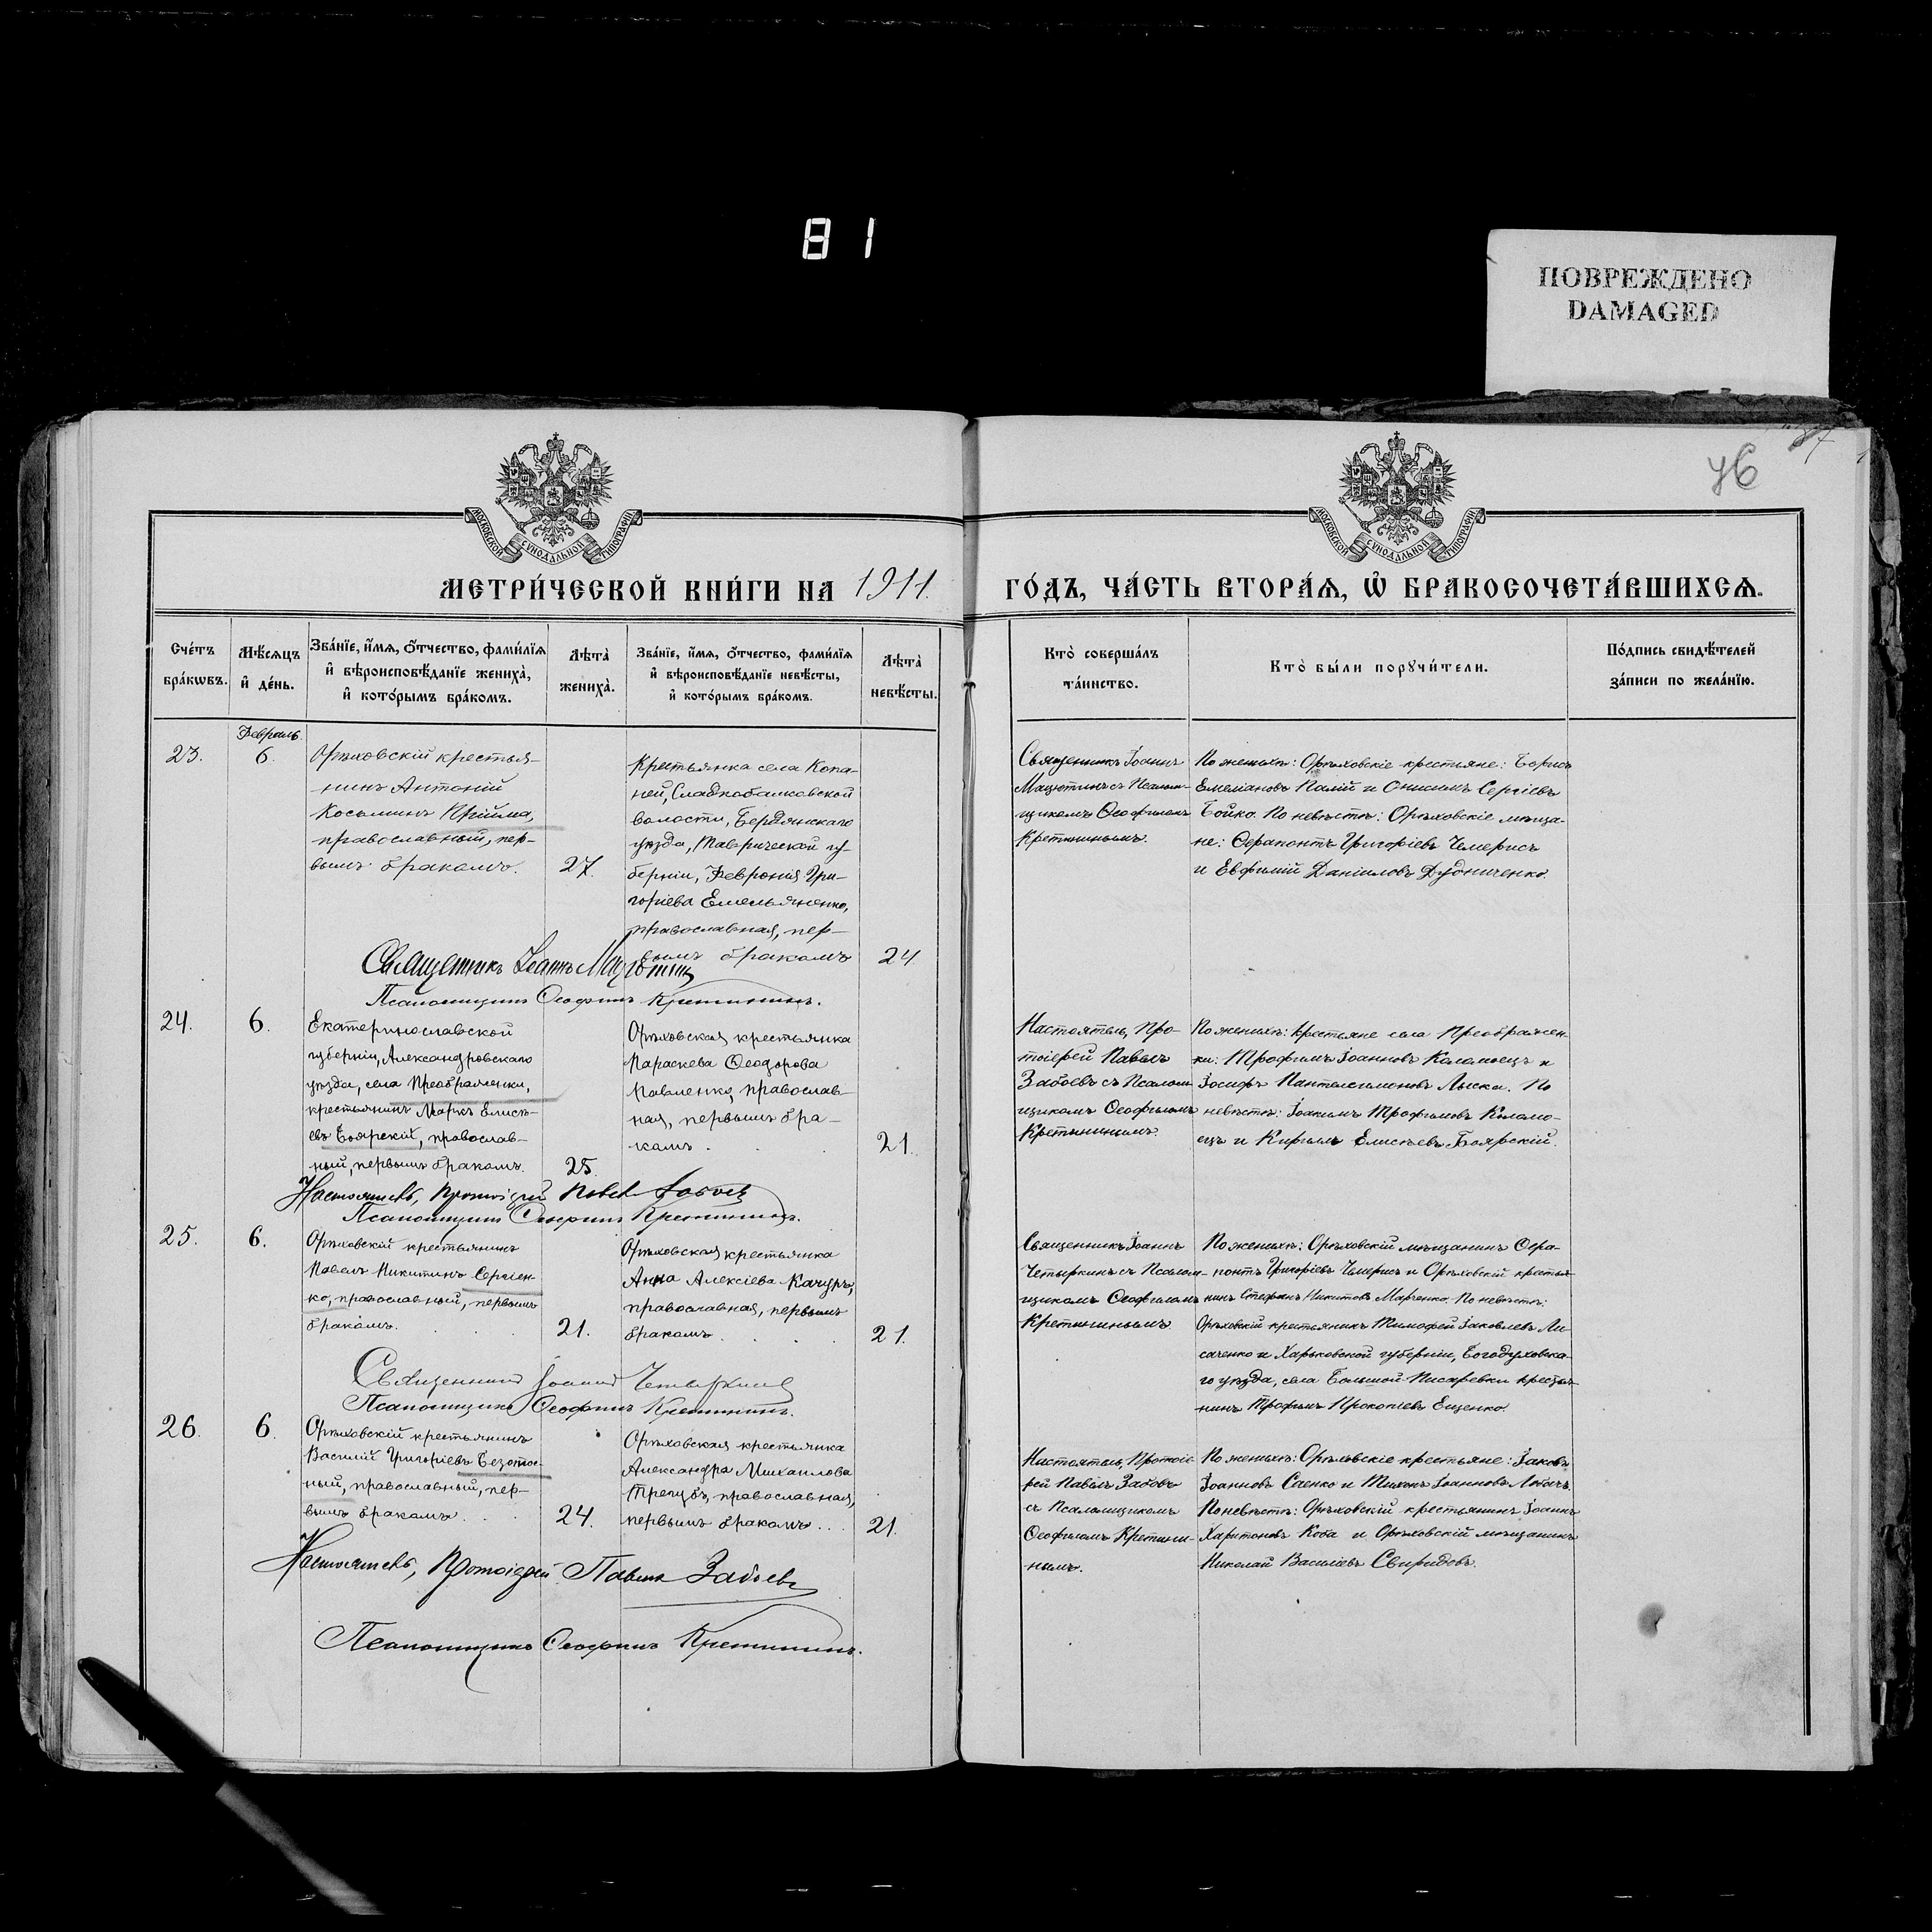 81
ПОВРЕЖДЕНО
DAMAGED
46
МОСКОВСКОЙ СѴНОДАЛЬНОЙ ТИПОГРАФІИ
МОСКОВСКОЙ СѴНОДАЛЬНОЙ ТИПОГРАФІИ
МЕТРИ́ЧЕСКОЙ КНИ́ГИ НА 1911.
ГО́ДЪ, ЧА́СТЬ ВТОРА́Я, Ѽ БРАКОСОЧЕТА́ВШИХСЯ.
Сче́тъ
бра́кѡвъ.
Мѣ́сяцъ
и҆ де́нь.
Зва́нїе, и҆́мя, о҆́тчество, фами́лїя
и҆ вѣроисповѣ́данїе жениха̀,
и҆ кото́рымъ бра́комъ.
Лѣта̀
жениха̀.
Зва́нїе, и҆́мя, о҆́тчество, фами́лїя
и҆ вѣроисповѣ́данїе невѣ́сты,
и҆ кото́рымъ бра́комъ.
Лѣта̀
невѣ́сты.
Кто̀ соверша́лъ
та́инство.
Кто̀ бы́ли порꙋчи́тели.
По́дпись свидѣ́телей
за́писи по жела́нїю.
Февраль.
23.
6.
Орѣховскій крестья-
нинъ Антоній
Косьминъ Прійма,
православный, пер-
вымъ бракомъ.
27.
Крестьянка села Копа-
ней, Сладкобалковской
волости, Бердянскаго
уѣзда, Таврической гу-
берніи, Февронія Гри-
горіева Емельяненко,
православная, пер-
вымъ бракомъ
24.
Священникъ Іоаннъ
Мацютинъ съ Псалом-
щикомъ Ѳеофиломъ
Кретининымъ.
По женихѣ: Орѣховскіе крестьяне: Борисъ
Емеліановъ Палій и Онисимъ Сергіевъ
Бойко. По невѣстѣ: Орѣховскіе мѣща-
не: Ѳерапонтъ Григоріевъ Чемерисъ
и Евфимій Даніиловъ Дудниченко.
Священникъ Іоаннъ Мацютинъ
Псаломщикъ Ѳеофилъ Кретининъ.
24.
6.
Екатеринославской
губерніи, Александровскаго
уѣзда, села Преображенки,
крестьянинъ Маркъ Елисѣ-
евъ Боярскій, православ-
ный, первымъ бракомъ.
25.
Орѣховская крестьянка
Параскева Ѳеодорова
Павленко, православ-
ная, первымъ бра-
комъ . .
21.
Настоятель, Про-
тоіерей Павелъ
Забоевъ съ Псалом-
щикомъ Ѳеофиломъ
Кретининымъ.
По женихѣ: крестьяне села Преображен-
ки: Трофимъ Іоанновъ Коломоецъ и
Іосифъ Пантелеимоновъ Лыска. По
невѣстѣ: Іоакимъ Трофимовъ Коломо-
ецъ и Кириллъ Елисѣевъ Боярскій.
Настоятель, Протоіерей Павелъ Забоевъ
Псаломщикъ Ѳеофилъ Кретининъ.
25.
6.
Орѣховскій крестьянинъ
Павелъ Никитинъ Сергіен-
ко, православный, первымъ
бракомъ. . .
21.
Орѣховская крестьянка
Анна Алексіева Качуръ,
православная, первымъ
бракомъ . . . .
21.
Священникъ Іоаннъ
Четыркинъ съ Псалом-
щикомъ Ѳеофиломъ
Кретининымъ.
По женихѣ: Орѣховскій мѣщанинъ Ѳера-
понтъ Григоріевъ Чемерисъ и Орѣховскій крестья-
нинъ Стефанъ Никитовъ Марченко. По невѣстѣ:
Орѣховскій крестьянинъ Тимофей Іаковлевъ Ли-
саченко и Харьковской губерніи, Богодуховска-
го уѣзда, села Большой Писаревки крестья-
нинъ Трофимъ Прокопіевъ Ещенко.
Священникъ Іоаннъ Четыркинъ
Псаломщикъ Ѳеофилъ Кретининъ.
26.
6.
Орѣховскій крестьянинъ
Василій Григоріевъ Безотос-
ный, православный, пер-
вымъ бракомъ . . .
24.
Орѣховская крестьянка
Александра Михаилова
православная,
первымъ бракомъ . . .
21.
Настоятель, Протоіе-
рей Павелъ Забоевъ
съ Псаломщикомъ
Ѳеофиломъ Кретини-
нымъ.
По женихѣ: Орѣховскіе крестьяне: Іаковъ
Іоанновъ Саенко и Тихонъ Іоанновъ Лобачъ.
По невѣстѣ: Орѣховскій крестьянинъ Іоаннъ
Харитоновъ Коба и Орѣховскій мѣщанинъ
Николай Василіевъ Свиридовъ.
Настоятель, Протоіерей Павелъ Забоевъ
Псаломщикъ Ѳеофилъ Кретининъ.